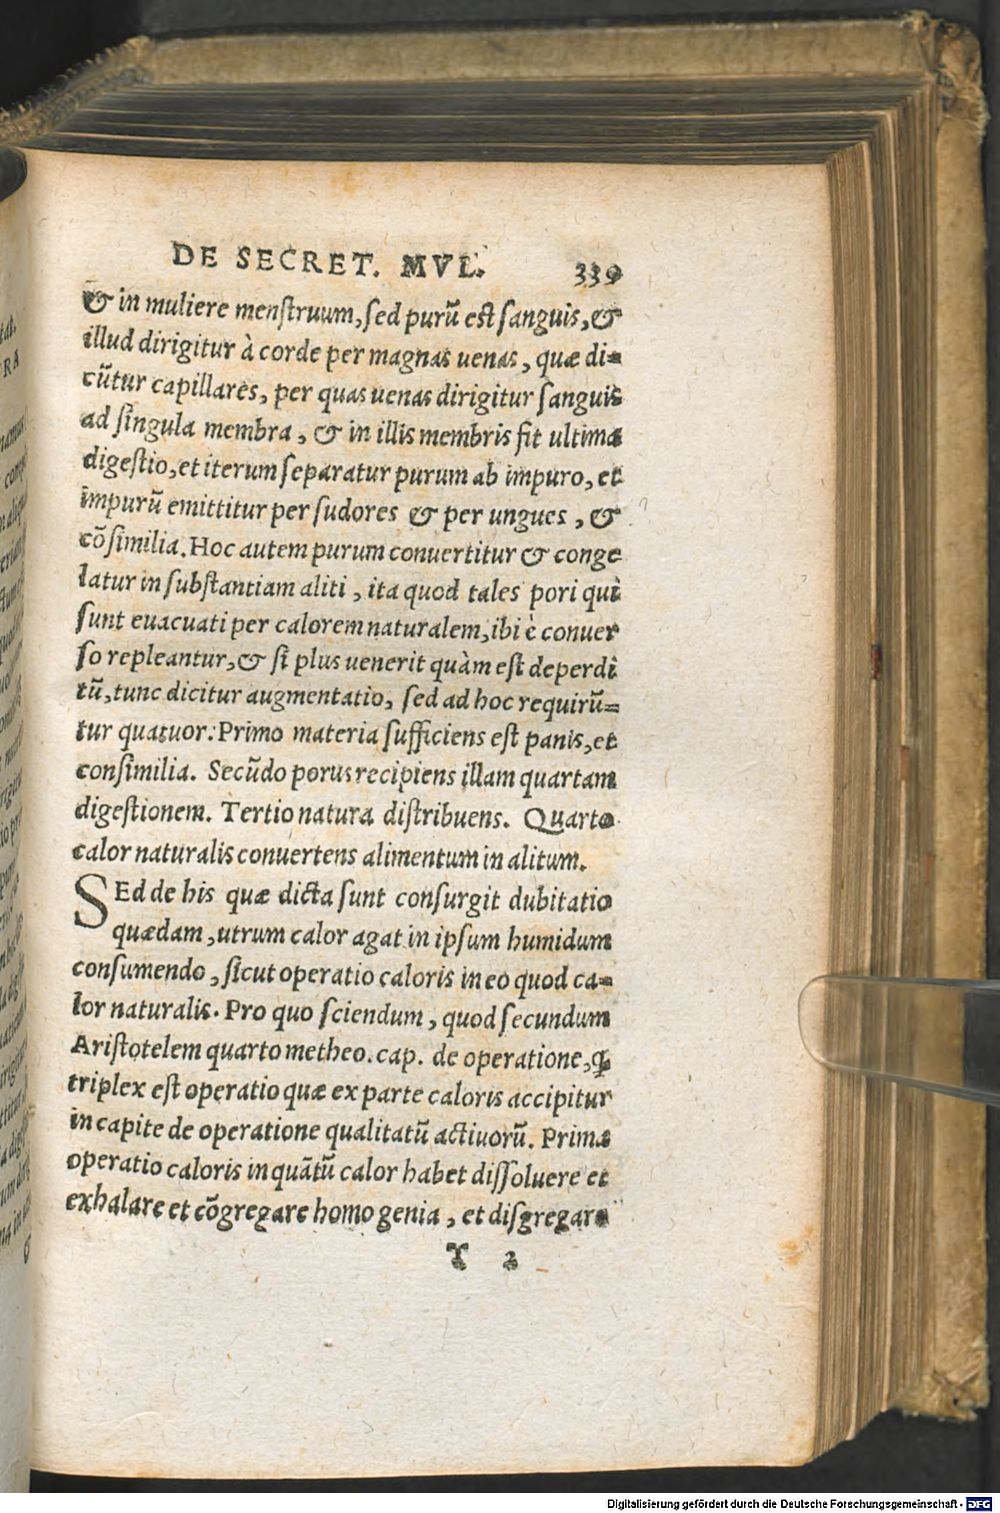 DE SECRET. MVL. 339
& in muliere menſtruum, ſed purũ eſt ſanguis, &
illud dirigitur à corde per magnas uenas, quæ di=
cũtur capillares, per quas uenas dirigitur ſanguis
ad ſingula membra, & in illis membris fit ultima
digeſtio, et iterum ſeparatur purum ab impuro, et
impurũ emittitur per ſudores & per ungues, &
cõſimilia. Hoc autem purum conuertitur & conge
latur in ſubſtantiam aliti, ita quod tales pori qui
ſunt euacuati per calorem naturalem, ibi è conuer
ſo repleantur, & ſi plus uenerit quàm eſt deperdi
tũ, tunc dicitur augmentatio, ſed ad hoc requirũ=
tur quatuor: Primo materia ſufficiens eſt panis, et
conſimilia. Secũdo porus recipiens illam quartam
digeſtionem. Tertio natura diſtribuens. Quarto
calor naturalis conuertens alimentum in alitum.
SEd de his quæ dicta ſunt conſurgit dubitatio
quædam, utrum calor agat in ipſum humidum
conſumendo, ſicut operatio caloris in eo quod ca=
lor naturalis. Pro quo ſciendum, quod ſecundum
Ariſtotelem quarto metheo. cap. de operatione, ꝙ
triplex eſt operatio quæ ex parte caloris accipitur
in capite de operatione qualitatũ actiuorũ. Prima
operatio caloris inquãtũ calor habet diſſoluere et
exhalare et cõgregare homogenia, et diſgregare
T 2
Digitalisierung gefördert durch die Deutsche Forschungsgemeinschaft - DFG